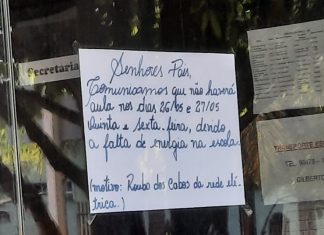 Secretaria
Senhores Pais,
Comunicamos que não haverá
aula nos dias 26/05 e 27/05
Quinta e sexta-feira, devido
a falta de energia na escola.
(motivo: Roubo dos Cabos da rede elé-
trica.)
TRANSPORTE ES
GILBERTO